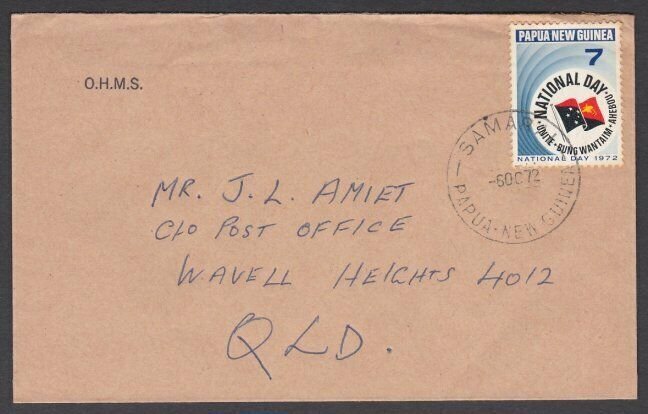 O.H.M.S.
PAPUA NEW GUINEA
7
NATIONAL DAY
UNITE · BUNG WANTAIM · AHEBOU
NATIONAL DAY 1972
-6OC72
PAPUA-NEW GUINEA
MR. J. L. AMIET
C/O POST OFFICE
WAVELL HEIGHTS 4012
QLD.